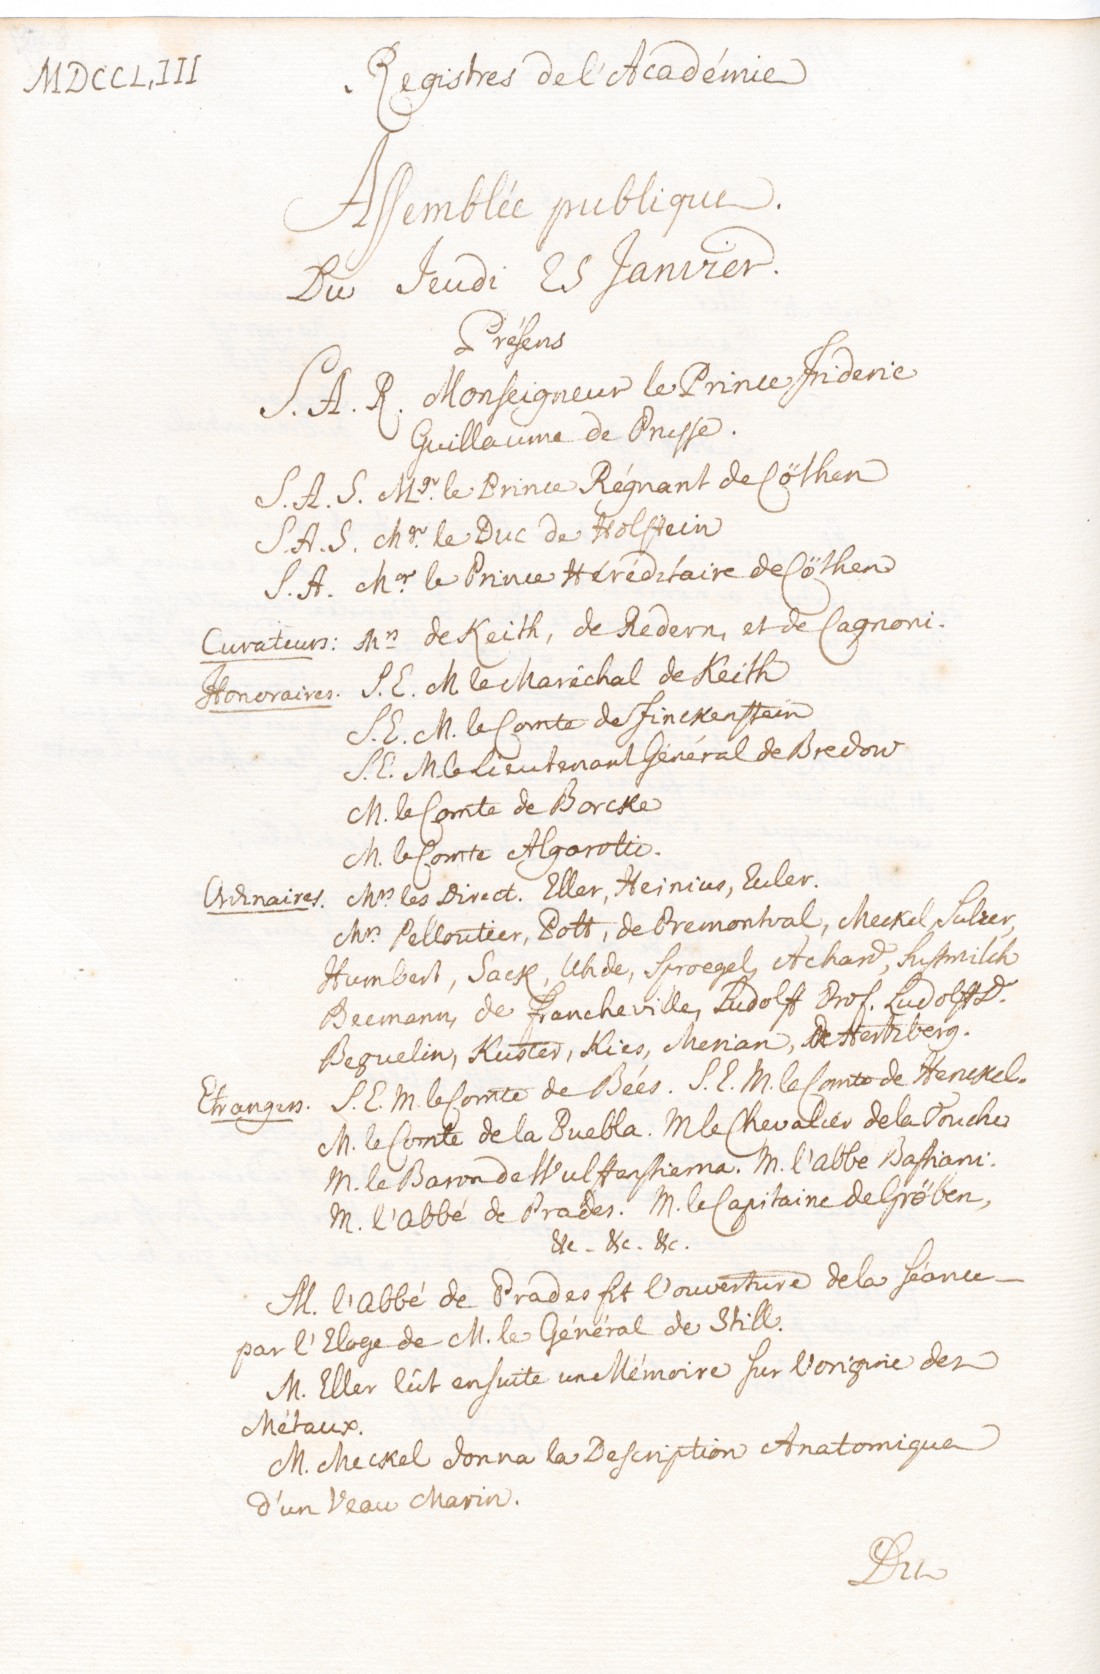 MDCCLIII
Registres de l'Académie
Assemblée publique.
Du Jeudi 25 Janvier.
Présens
S. A. R. Monseigneur le Prince Frideric
Guillaume de Prusse.
S. A. S. Mgr. le Prince Régnant de Cöthen
S. A. S. Mgr. le Duc de Holstein
S. A. Mgr le Prince Héréditaire de Cöthen
Curateurs: Mrs de Keith, de Redern, et de Cagnoni.
Honoraires. S. E. M. le Maréchal de Keith
S. E. M. le Comte de Finckenstein
S. E. M. le Lieutenant Général de Bredow
M. le Comte de Borcke
M. le Comte Algarotti.
Ordinaires. Mrs les Direct. Eller, Heinius, Euler.
Mrs Pelloutier, Pott, de Premontval, Meckel, Sulzer,
Humbert, Sack, Uhde, Sproegel, Achard, Susmilch
Becmann, de Francheville, Ludolff Prof. Ludolff D.
Beguelin, Kuster, Kies, Merian, de Hertzberg.
Etrangers. S. E. M. le Comte de Béés. S. E. M. le Comte de Henckel.
M. le Comte de la Puebla. M le Chevalier de la Touche
M. le Baron de Wulffenstierna. M. l'abbe Bastiani.
M. l'abbé de Prades. M. le Capitaine de Gröben,
&c - &c. &c.
M. l'abbé de Prades fit l'ouverture de la séance
par l'Eloge de M. le Général de Still.
M. Eller lût ensuite un Mémoire sur l'origine des
Métaux.
M. Meckel donna la Description Anatomique
d'un Veau Marin.
Du